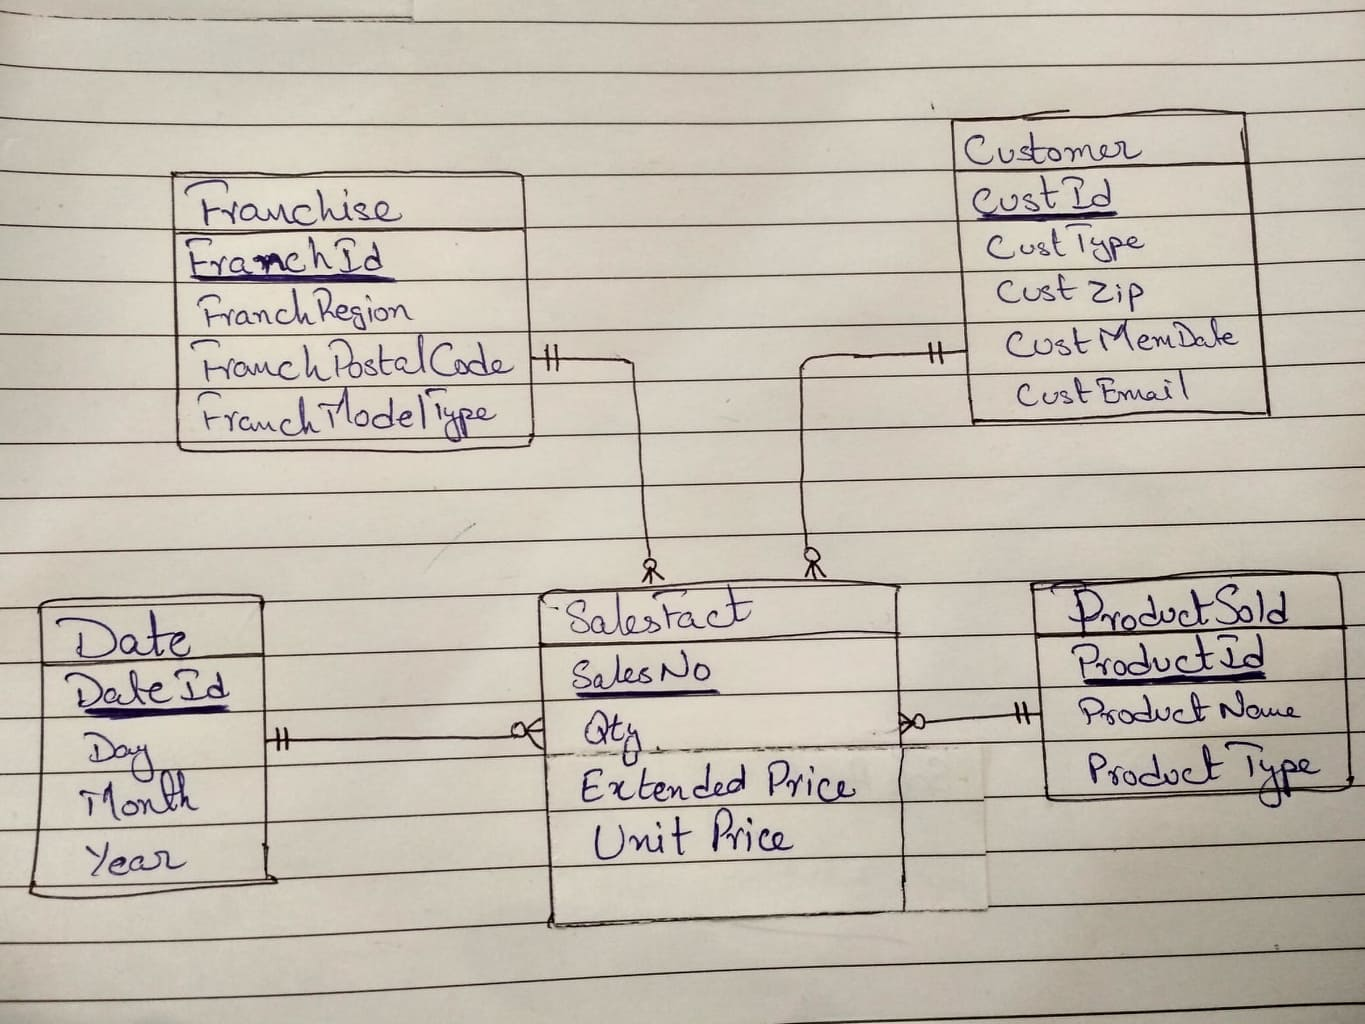 Franchise
FranchId
FranchRegion
FranchPostalCode
FranchModelType
Customer
CustId
CustType
Cust Zip
CustMemDate
CustEmail
Date
DateId
Day
Month
Year
SalesFact
SalesNo
Qty.
Extended Price
Unit Price
ProductSold
ProductId
Product Name
Product Type